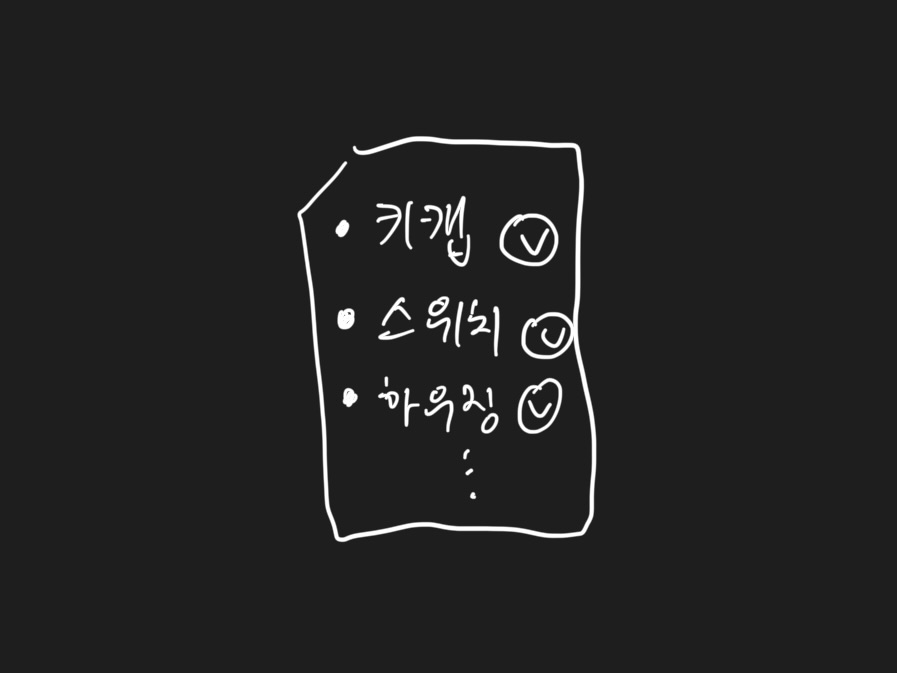 • 키캡
• 스위치
• 하우징
⋮